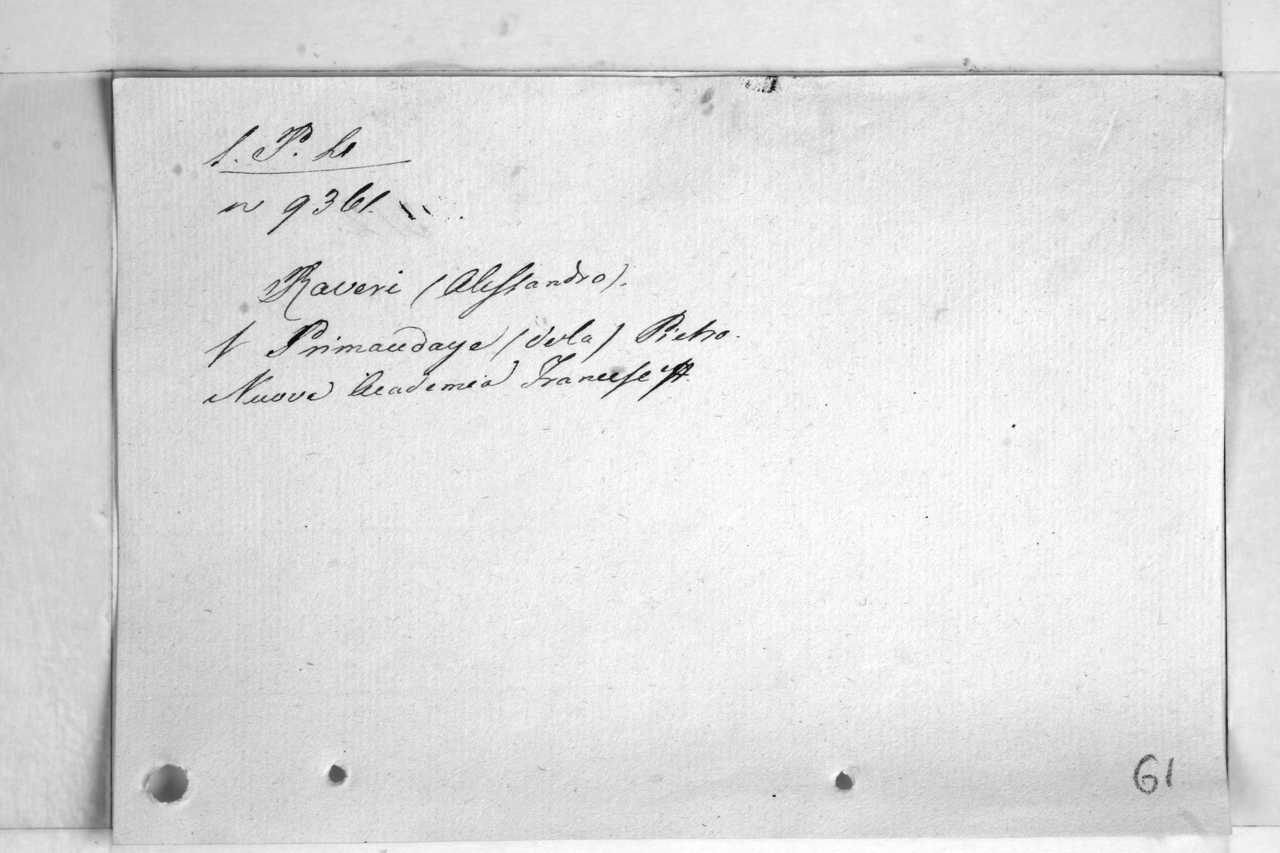 S. P. L1
n 9361.
Raveri (Alessandro).
V Primaudaye (dela) Pietro.
Nuova Academia Francese
61